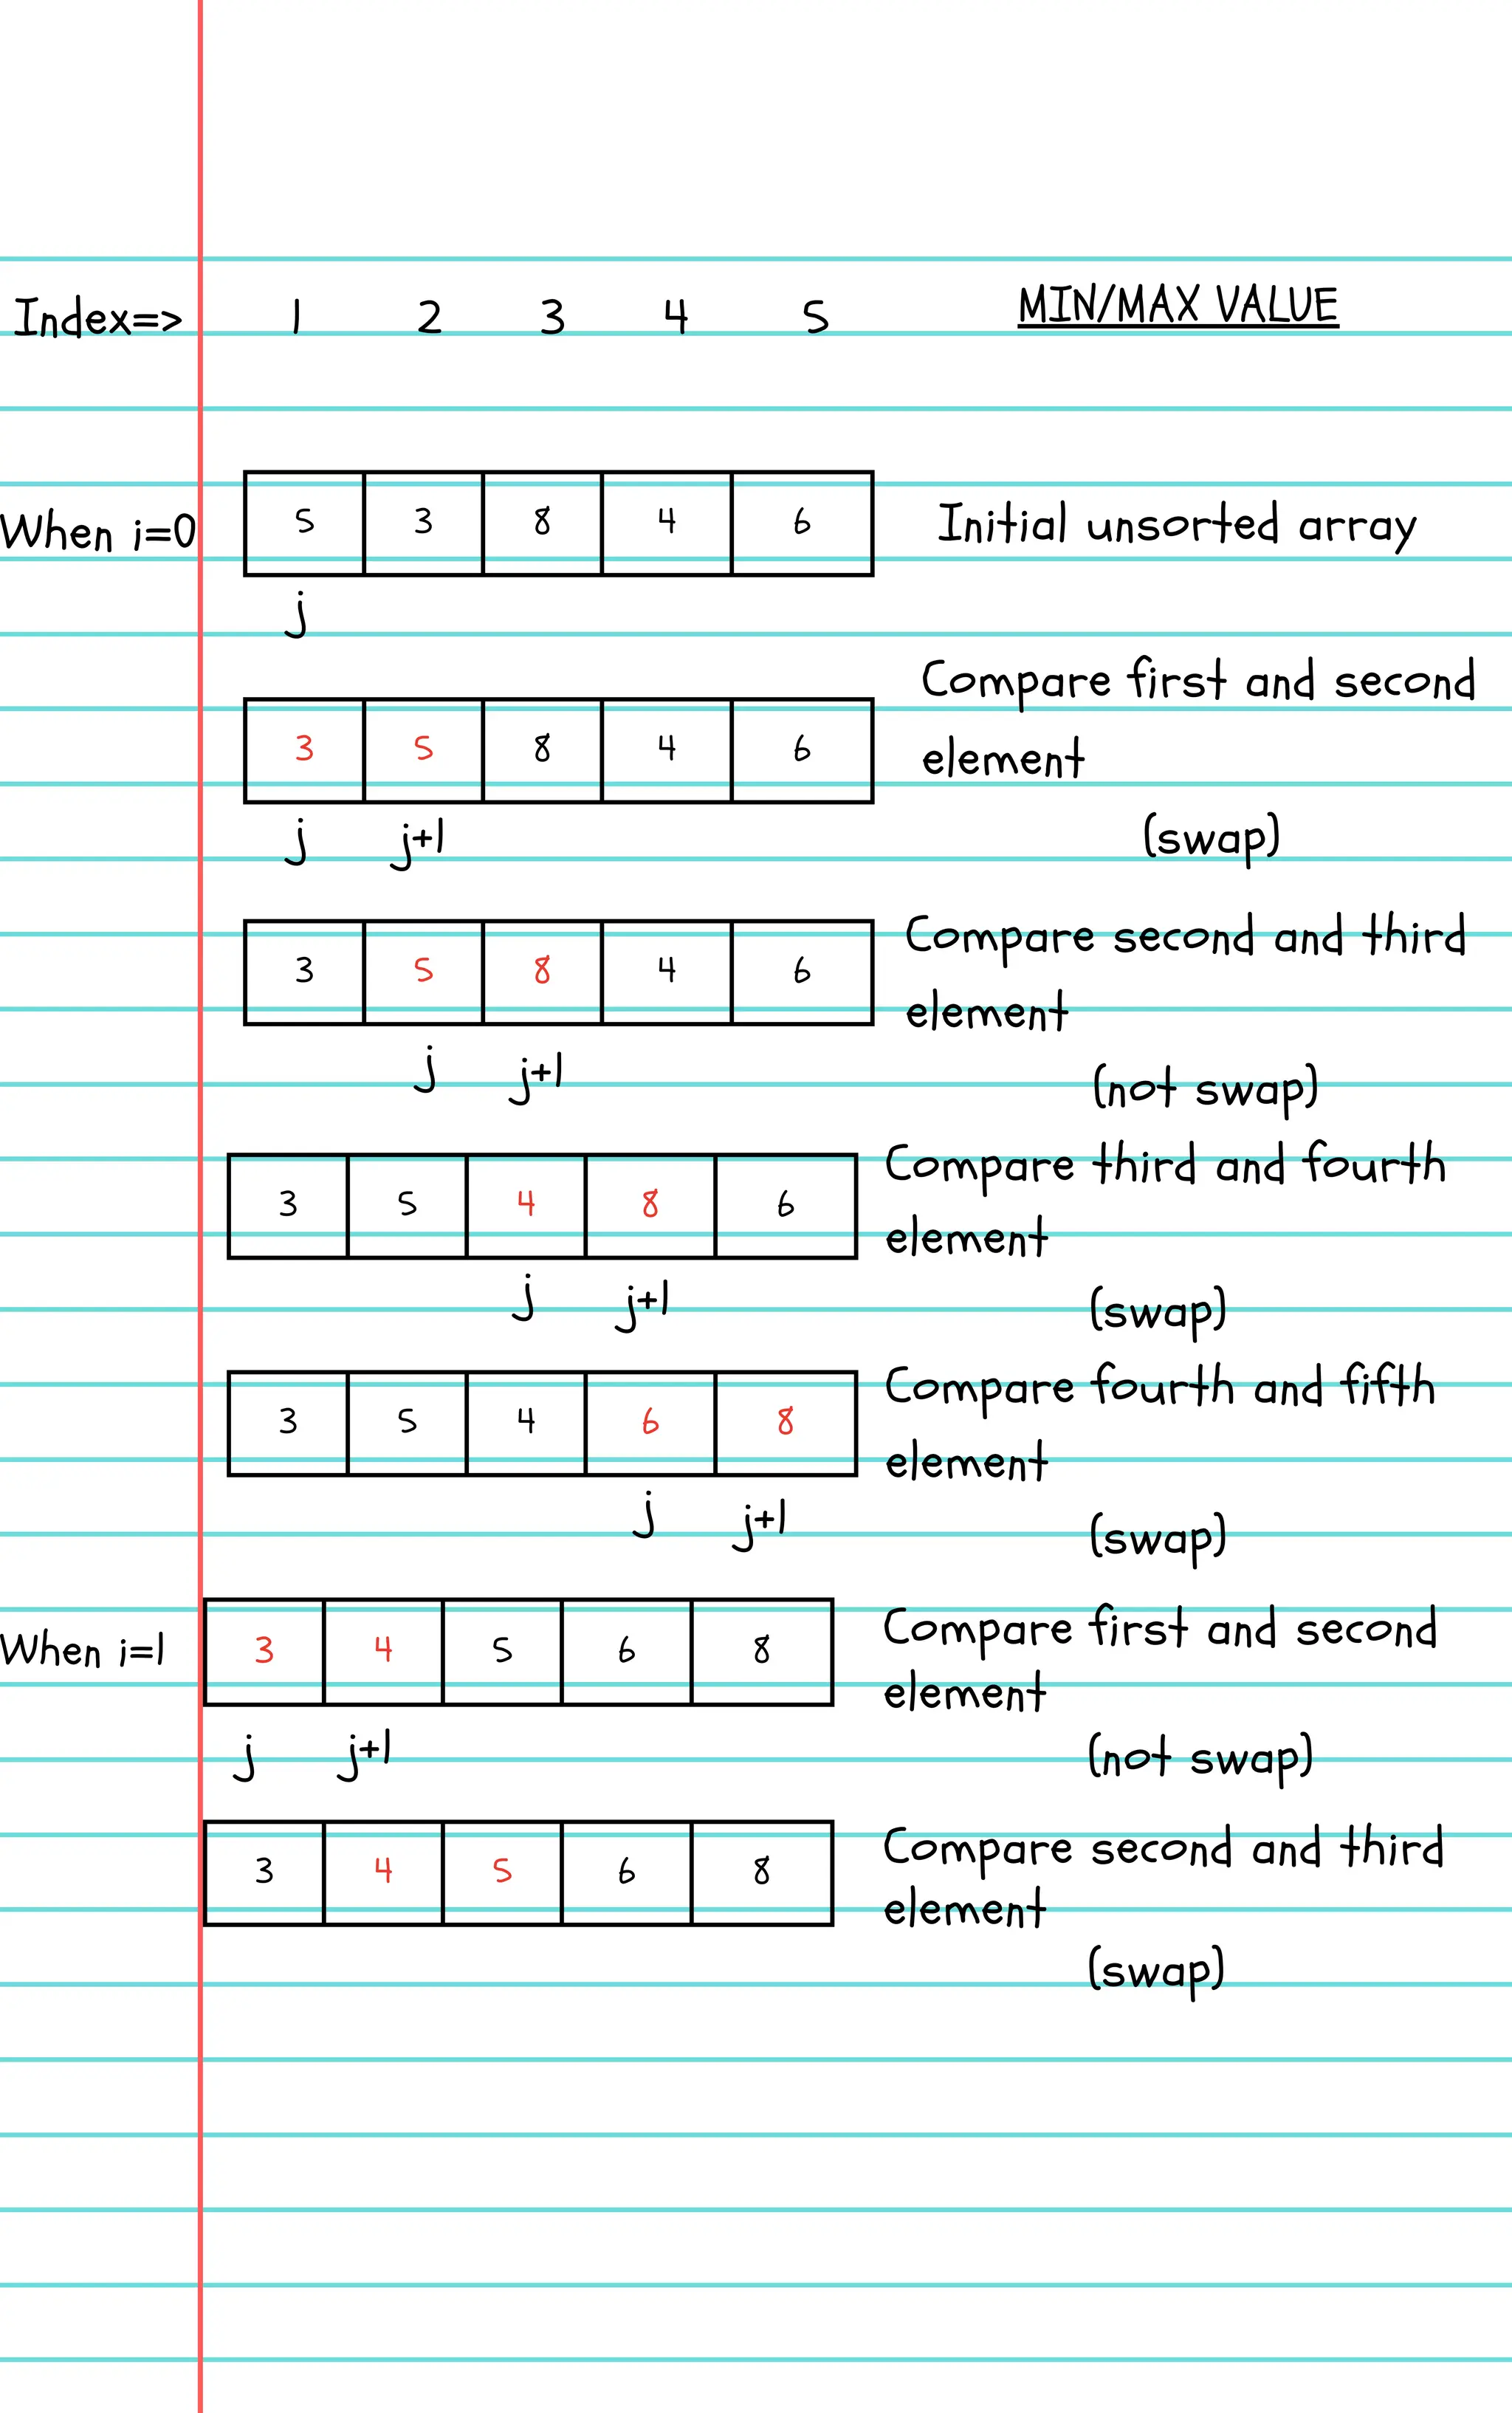 Index=> 1 2 3 4 5 MIN/MAX VALUE
When i=0 5 3 8 4 6 Initial unsorted array
j
Compare first and second
3 5 8 4 6
element
j j+1 (swap)
Compare second and third
3 5 8 4 6
element
j j+1
(not swap)
Compare third and fourth
3 5 4 8 6
element
j j+1
(swap)
Compare fourth and fifth
3 5 4 6 8
element
j j+1
(swap)
Compare first and second
When i=1 3 4 5 6 8
element
j j+1
(not swap)
Compare second and third
3 4 5 6 8
element
(swap)